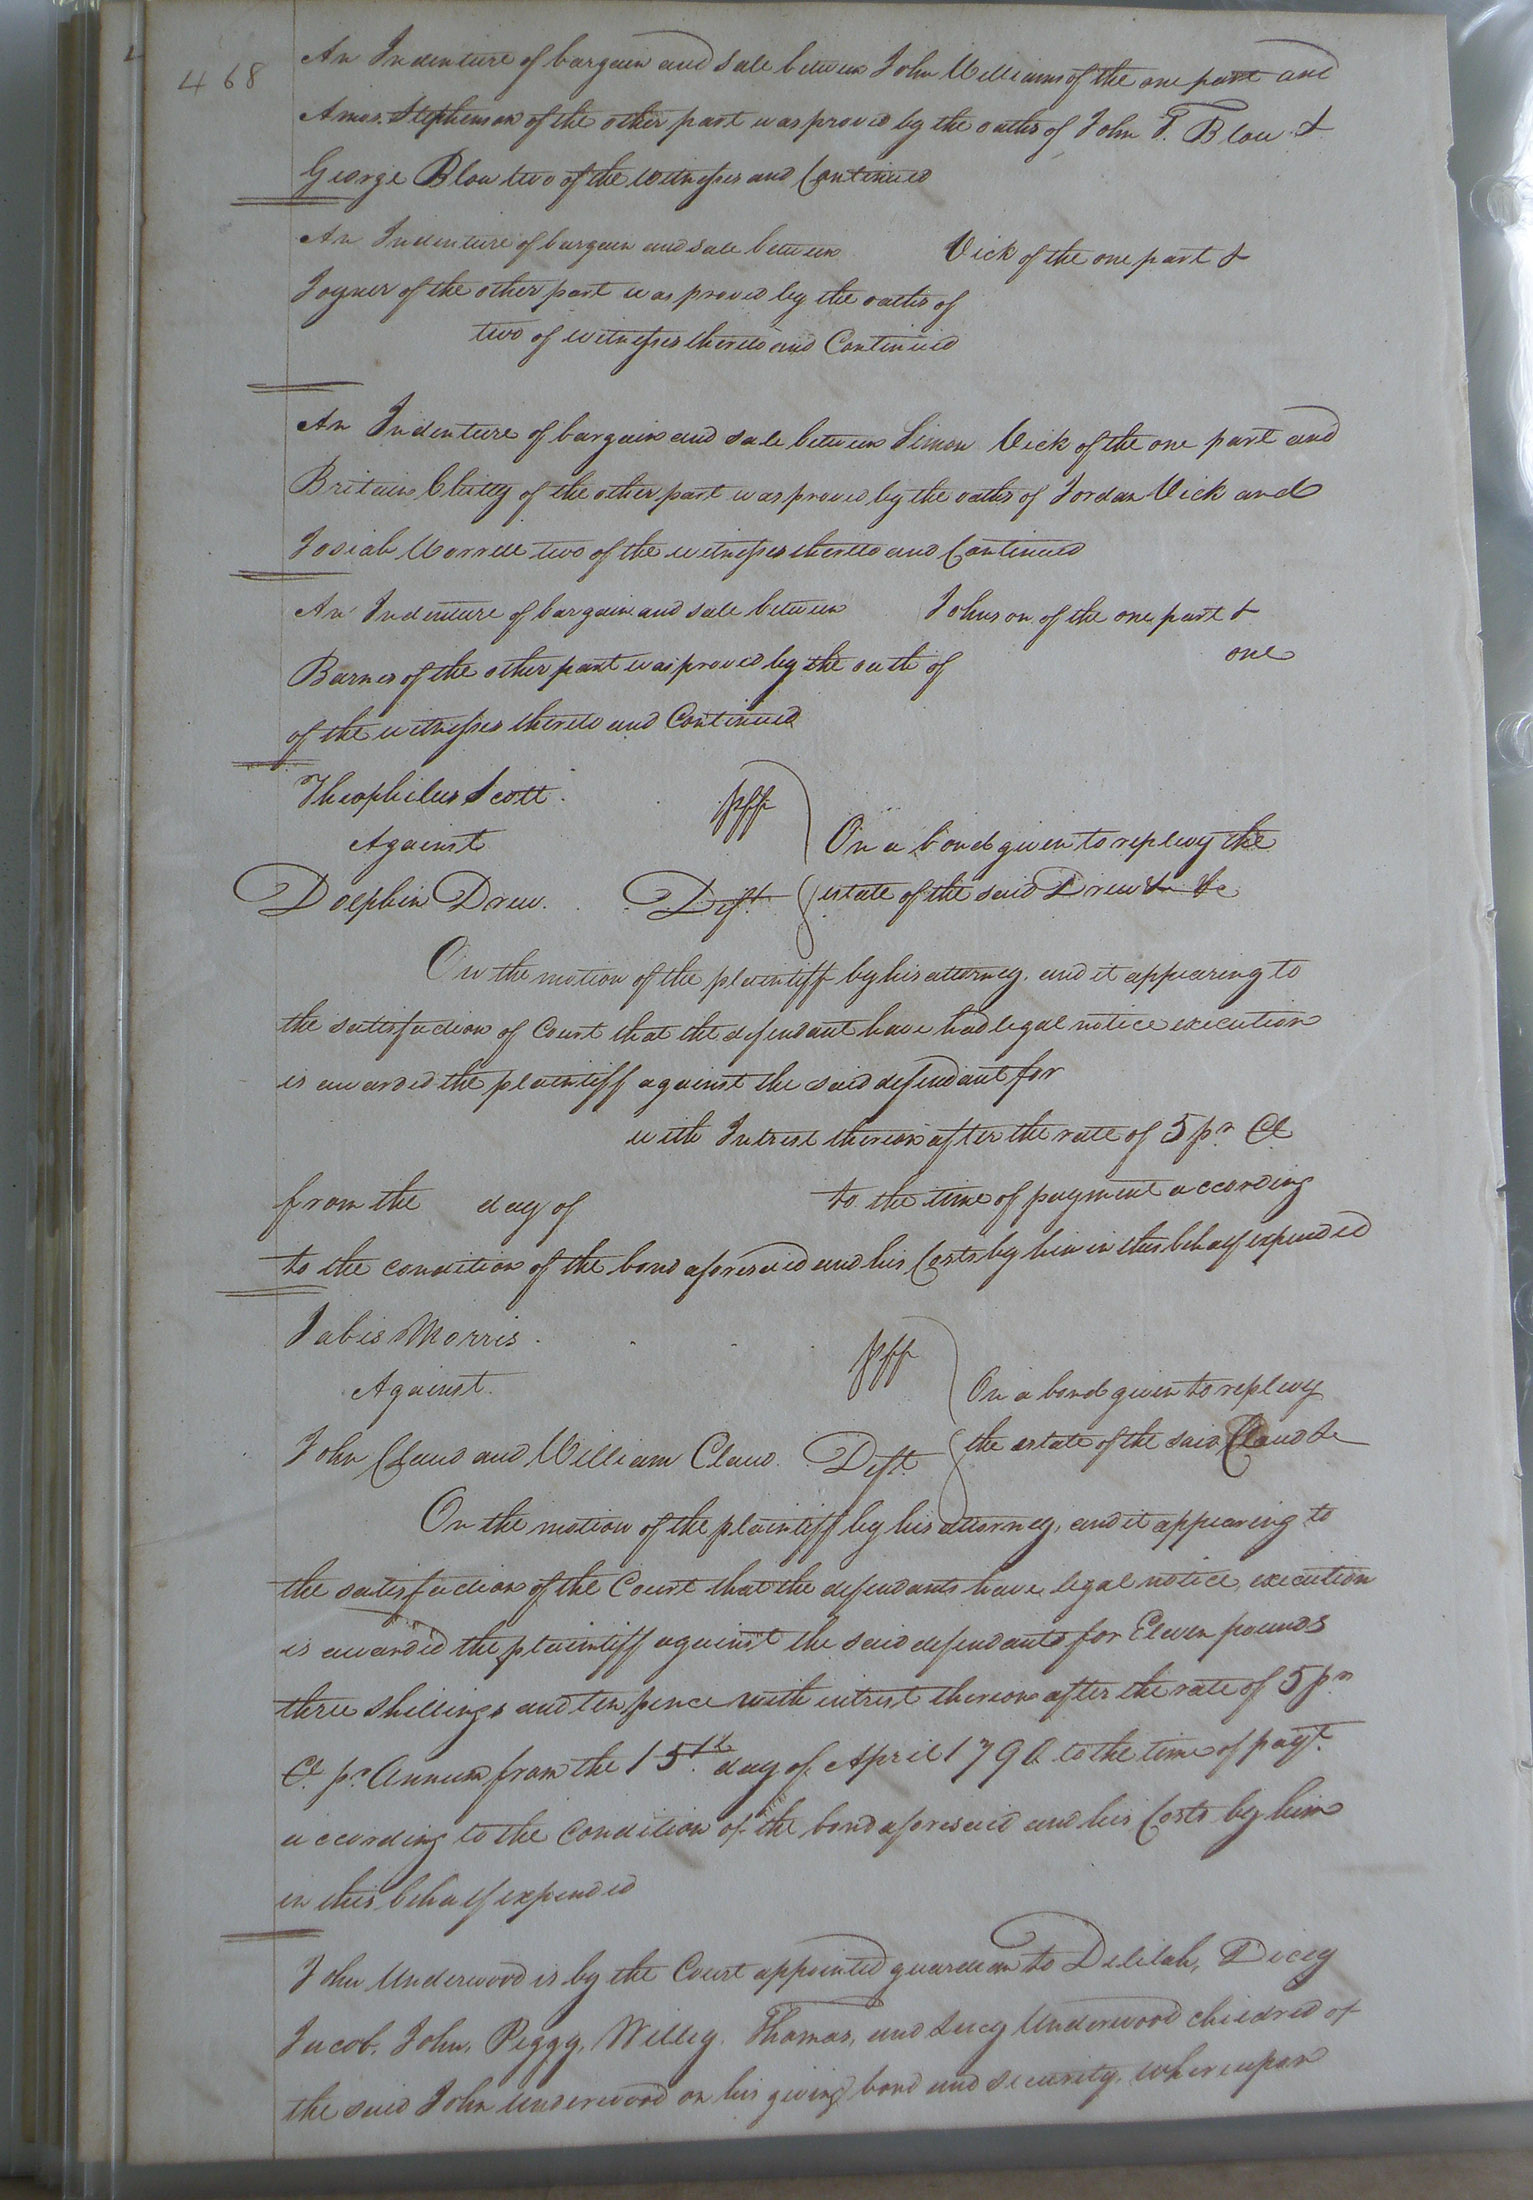 468
An Indenture of bargain and Sale between John Williams of the one part and
Amos Stephenson of the other part was proved by the oaths of John T. Blow &
George Blow two of the witnesses and Continued
An Indenture of bargain and sale between Vick of the one part &
Joyner of the other part was proved by the oaths of
two of witnesses thereto and Continued
An Indenture of bargain and sale between Simon Vick of the one part and
Britain Chitty of the other part was proved by the oaths of Jordan Vick and
Josiah Worrell two of the witnesses thereto and Continued
An Indenture of bargain and sale between Johnson of the one part &
Barnes of the other part was proved by the oath of one
of the witnesses thereto and Continued
Theophilus Scott plff
Against On a bond given to replevy the
Dolphin Drew. Deft. estate of the said Drew & &c
On the motion of the plaintiff by his attorney, and it appearing to
the satisfaction of Court that the defendant have had legal notice execution
is awarded the plaintiff against the said defendant for
with Intrest thereon after the rate of 5 pr Ct
from the day of to the time of payment according
to the condition of the bond aforesaid and his Costs by him in this behalf expended
Jabis Morris plff
Against On a bond given to replevy
John Claud and William Claud Deft. the estate of the said Claud &c
On the motion of the plaintiff by his attorney, and it appearing to
the satisfaction of the Court that the defendants have legal notice, execution
is awarded the plaintiff against the said defendants for Eleven pounds
three shillings and ten pence with intrest thereon after the rate of 5 pr
Ct pr Annum from the 15th day of April to the time of payt.
according to the condition of the bond aforesaid and his Costs by him
in this behalf expended
John Underwood is by the Court appointed guardian to Delilah, Dicey
Jacob, John, Peggy, Willey, Thomas, and Lucy Underwood childred of
the said John Underwood on his giving bond and security, whereupon